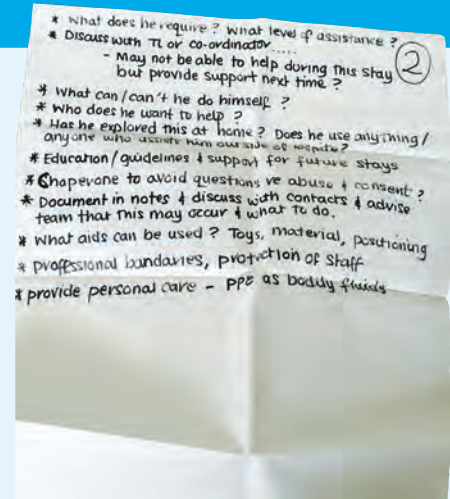 * What does he require? What level of assistance?
* Discuss with TL or co-ordinator.....
- May not be able to help during this stay
but provide support next time?
2
* What can/can't he do himself?
* Who does he want to help?
* Has he explored this at home? Does he use anything/
anyone who assists him outside of respite?
* Education/guidelines & support for future stays
* Chaperone to avoid questions re abuse & consent?
* Document in notes & discuss with contacts & advise
team that this may occur & what to do.
* What aids can be used? Toys, material, positioning
* proffssional bundaries, protection of staff
* provide personal care - PPE as bodily fluids